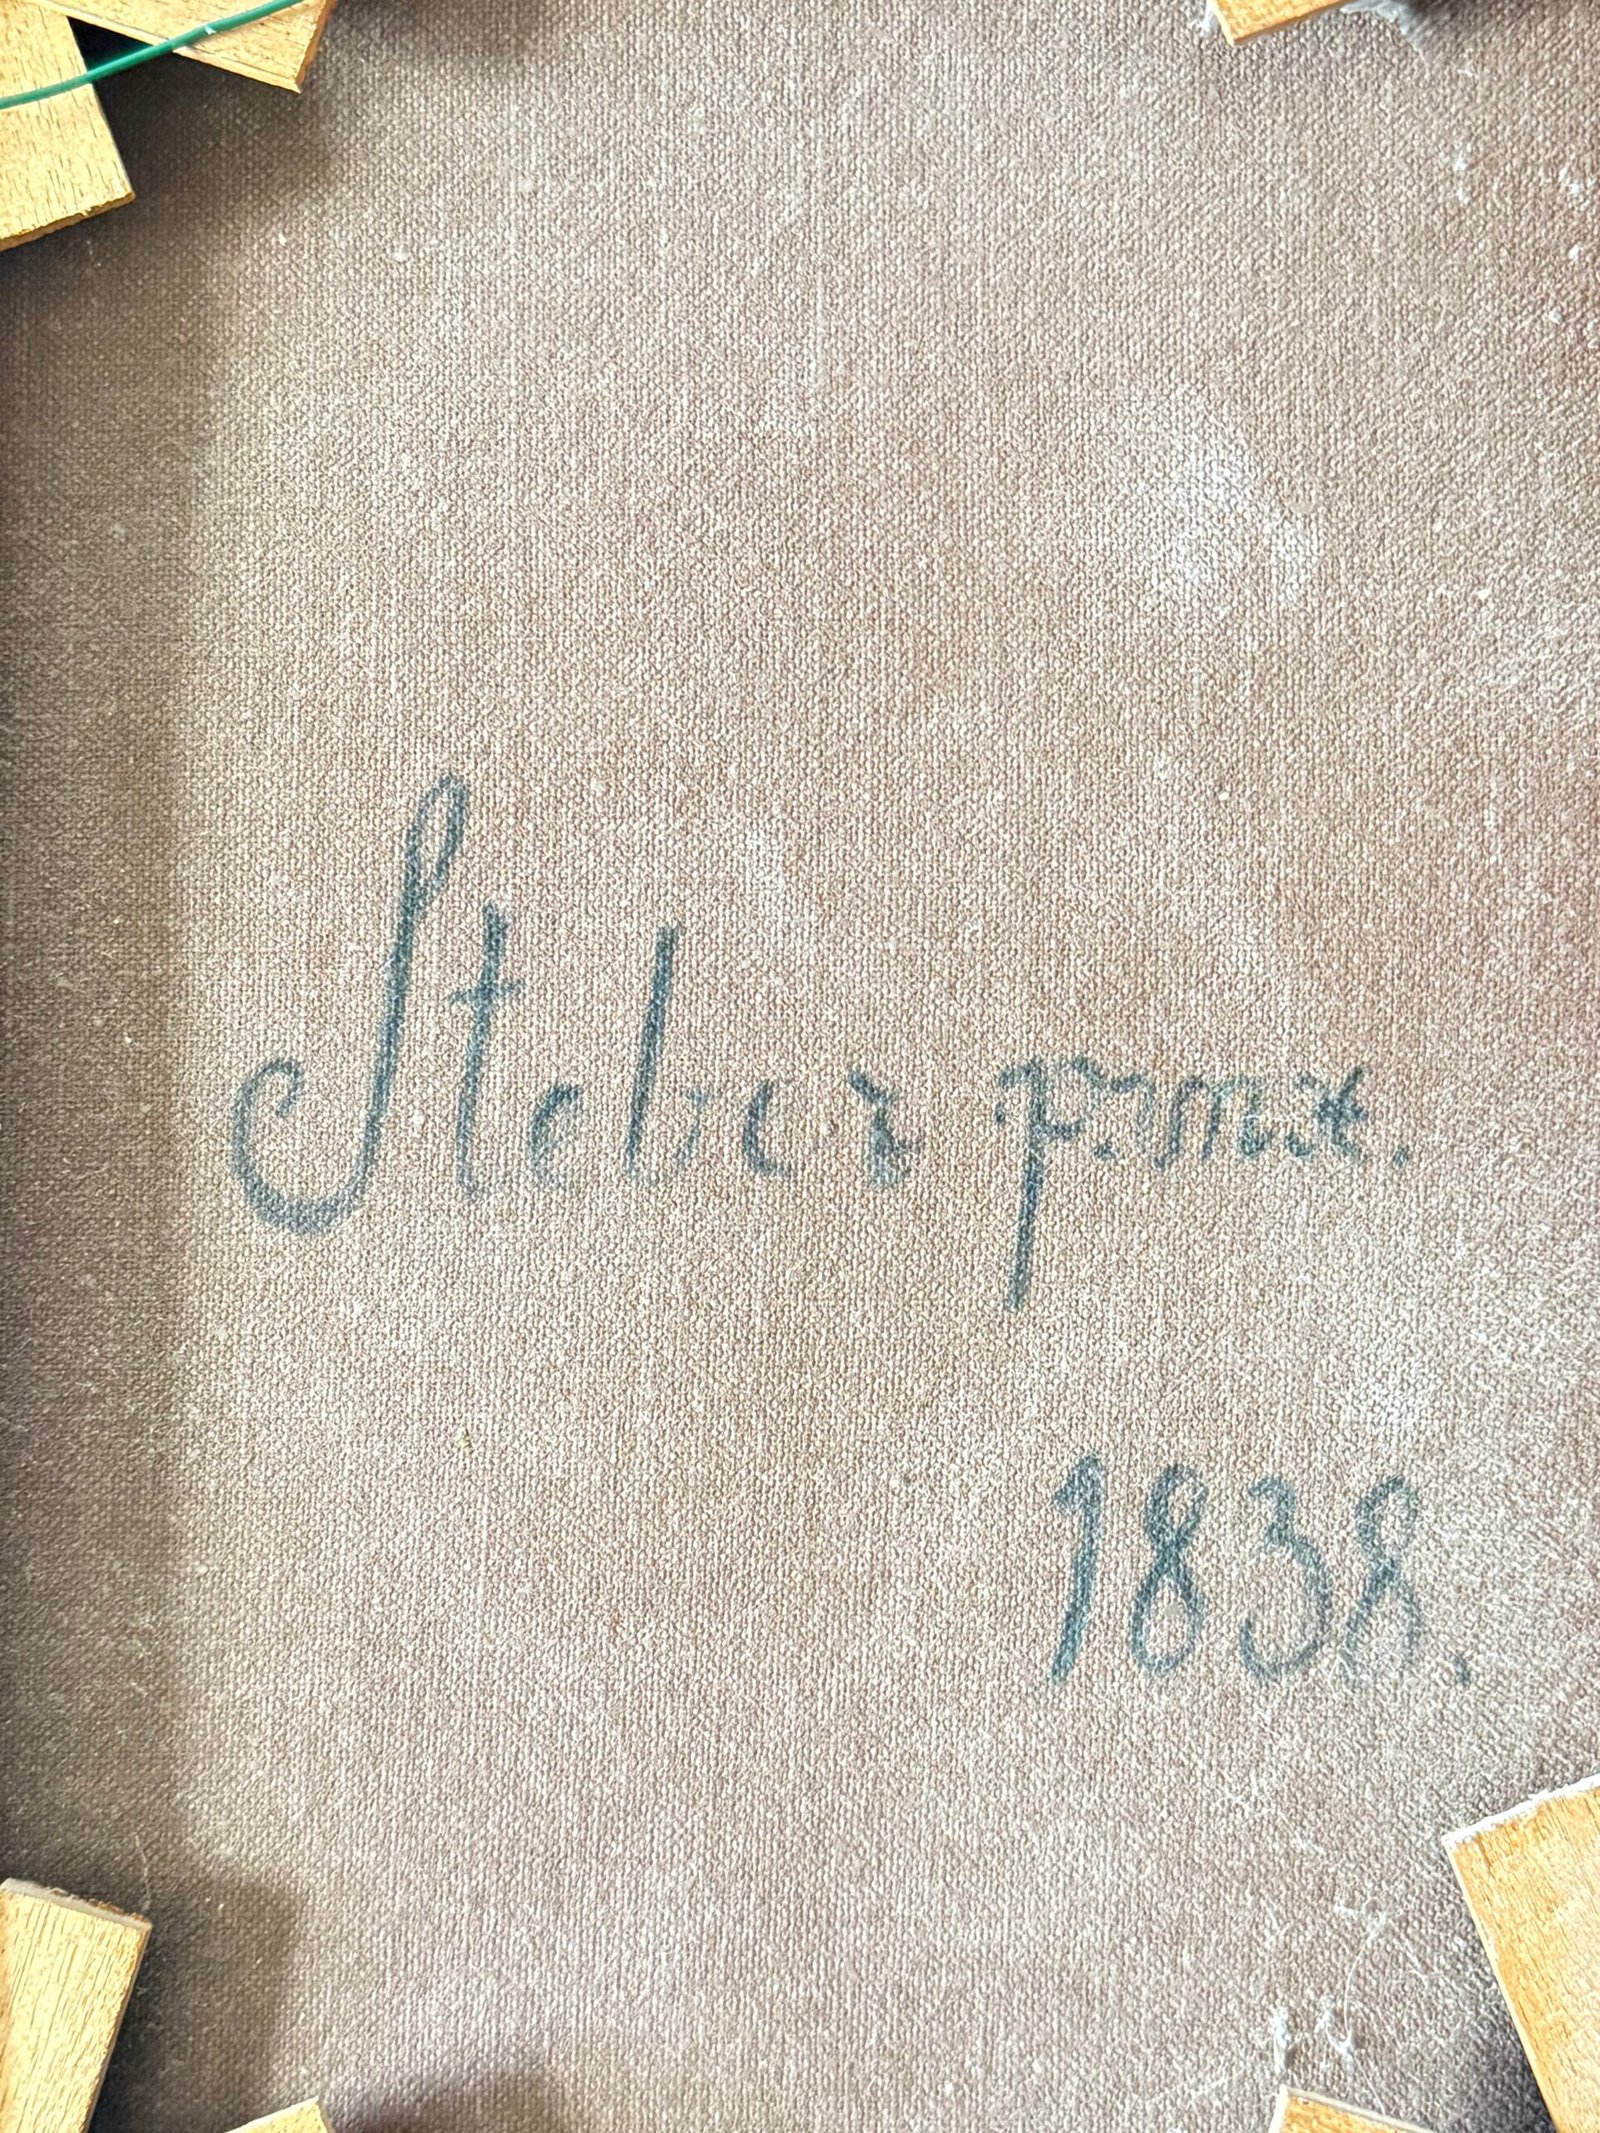 Steber pinxt.
1838.